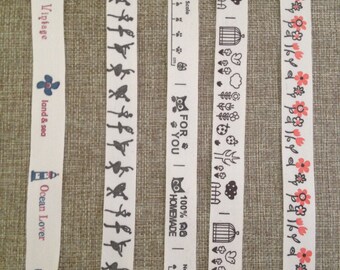 Vintage
land & sea
Ocean Lover
FOR
YOU
100%
HOMEMADE